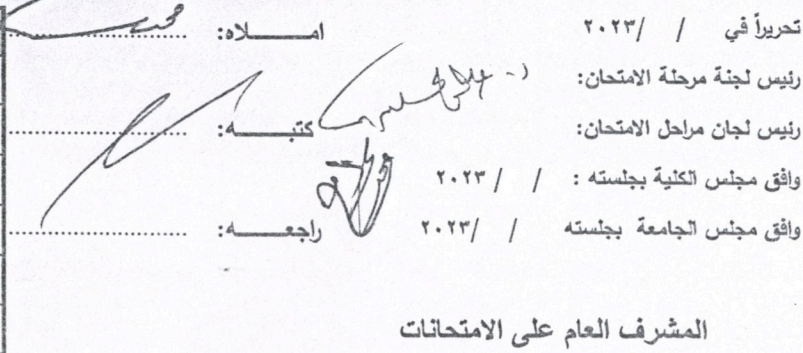 تحريراً في / /٢٠٢٣ امـــــلاه: ..................
رئيس لجنة مرحلة الامتحان:
رئيس لجان مراحل الامتحان: كتبـــــه: ..................
وافق مجلس الكلية بجلسته : / / ٢٠٢٣
وافق مجلس الجامعة بجلسته / /٢٠٢٣ راجعـــــه: ..................
المشرف العام على الامتحانات